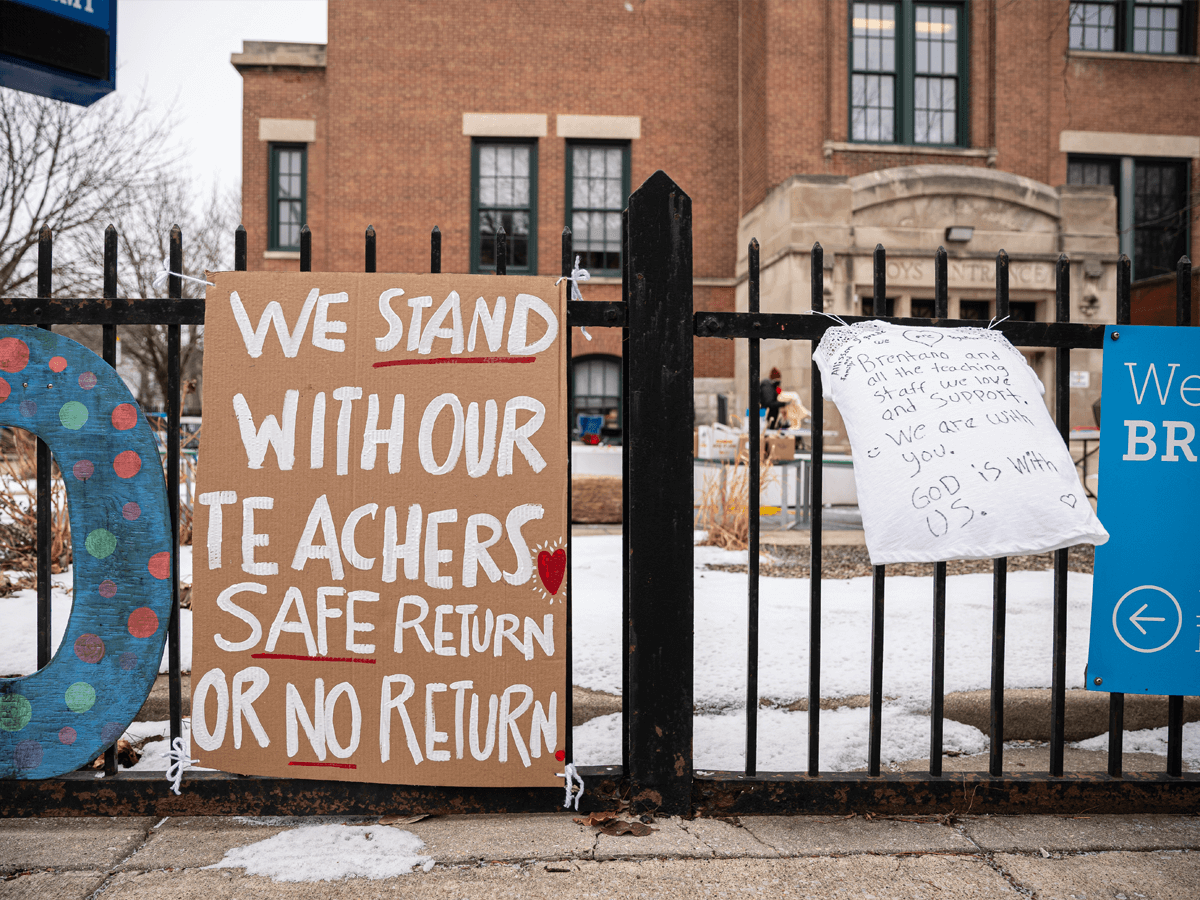 WE STAND
WITH OUR
TEACHERS
SAFE RETURN
OR NO RETURN
Brentano and
all the teaching
staff we love
and support.
We are with
you.
GOD is With
US.
OYS ENTRANCE
We
BR